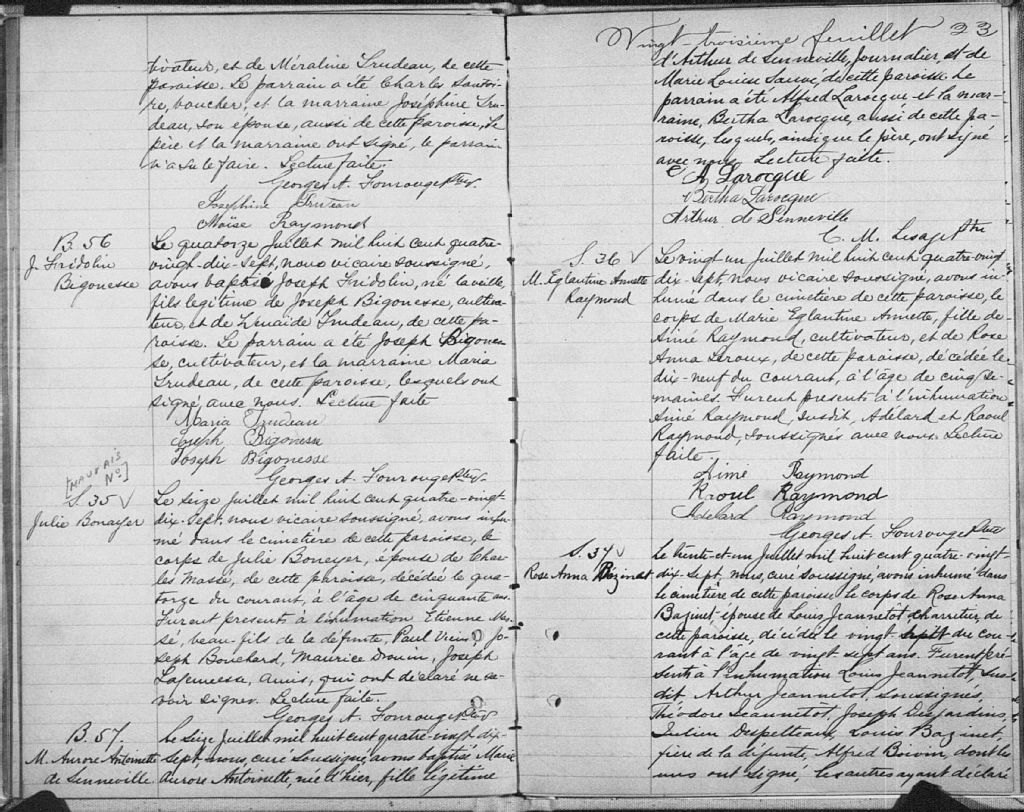 tivateur, et de Méraline Trudeau, de cette
paroisse. Le parrain a été Charles
boucher, et la marraine Joséphine Tru-
deau, son épouse, aussi de cette paroisse. Le
père et la marraine ont signé, le parrain
n'a su le faire. Lecture faite.
Georges A. Fourouget Ptre V.
Josephine Trudeau
Moïse Raymond
B. 56
J. Fridolin
Bigonesse
Le quatorze Juillet mil huit cent quatre-
vingt-dix-sept, nous vicaire soussigné,
avons baptisé Joseph Fridolin, né la veille,
fils legitime de Joseph Bigonesse, cultiva-
teur, et de Zénaïde Trudeau, de cette pa-
roisse. Le parrain a été Joseph Bigones
se, cultivateur, et la marraine Maria
Trudeau, de cette paroisse, lesquels ont
signé avec nous. Lecture faite
Maria Trudeau
Joseph Bigonesse
Joseph Bigonesse
Georges A. Fourouget Ptre V.
[MAUVAIS
No]
S. 35 V
Julie Bonayer
Le Seize Juillet mil huit cent quatre-vingt-
dix-sept, nous vicaire soussigné, avons inhu-
mé dans le cimetière de cette paroisse, le
corps de Julie Boneyer, épouse de Char-
les Massé, de cette paroisse, décédée le qua-
torze du courant, à l'âge de cinquante ans.
Furent presents à l'inhumation Etienne Mas-
sé, beau-fils de la défunte, Paul Jo-
seph Bouchard, Maurice Drouin, Joseph
Lajeunesse, amis, qui ont déclaré ne sa-
voir signer. Lecture faite.
Georges A. Fourouget Ptre V
B. 57.
M. Aurore Antoinette
de Senneville
Le Seize Juillet mil huit cent quatre-vingt dix-
sept nous, curé Soussigné, avons baptisé Marie
Aurore Antoinette, née d'hier, fille légitime
Vingt-troisième feuillet 23
d'Arthur de Senneville, journalier, et de
Marie Louise Sauvé, de cette paroisse. Le
parrain a été Alfred Larocque et la mar-
raine, Bertha Larocque, aussi de cette pa-
roisse, lesquels, ainsi que le père, ont signé
avec nous. Lecture faite.
A Larocque
Bertha Larocque
Arthur de Senneville
C. M. Lesage Ptre
S. 36 V
M. Eglantine Annette
Raymond
Le vingt un juillet mil huit cent quatre-vingt
dix-sept, nous vicaire soussigné, avons in-
humé dans le cimetière de cette paroisse, le
corps de Marie Eglantine Annette, fille de
Aimé Raymond, cultivateur, et de Rose
Anna Leroux, de cette paroisse, décédée le
dix-neuf du courant, à l'âge de cinq se-
maines. Furent presents à l'inhumation
Aimé Raymond, susdit, Adélard et Raoul
Raymond, soussignés avec nous. Lecture
faite.
Aimé Raymond
Raoul Raymond
Adelard Raymond
Georges A. Fourouget Ptre
S. 34 V
Rose Anna Bazinet
Le trente-et-un Juillet mil huit cent quatre-vingt
dix-sept, nous, curé soussigné, avons inhumé dans
le cimetière de cette paroisse le corps de Rose Anna
Bazinet épouse de Louis Jeannetôt, charretier, de
cette paroisse, décédée le vingt-sept du cou-
rant à l'âge de vingt sept ans. Furent pré-
sents à l'inhumation Louis Jeannetôt, sus-
dit, Arthur Jeannetôt, soussignés,
Théodore Jeannetôt, Joseph Desjardins,
Julien Despelteaux, Louis Bazinet,
frère de la défunte, Alfred Boivin, dont les
uns ont signé, les autres ayant déclaré